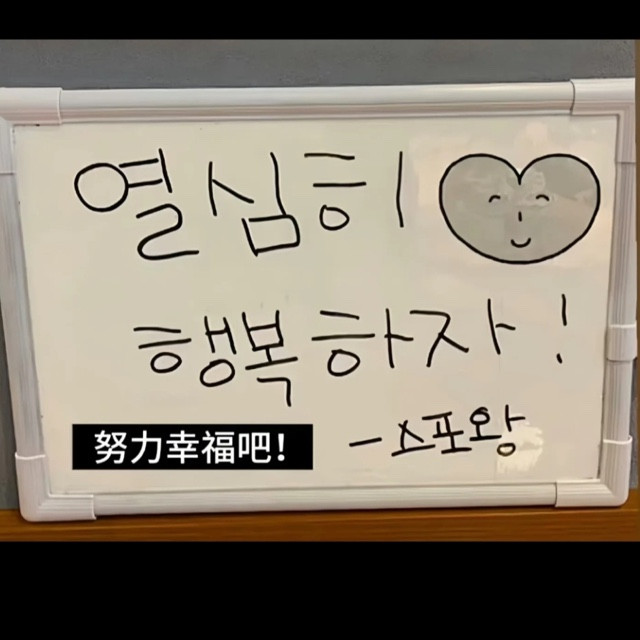 열심히
행복하자!
努力幸福吧！
-스포왕